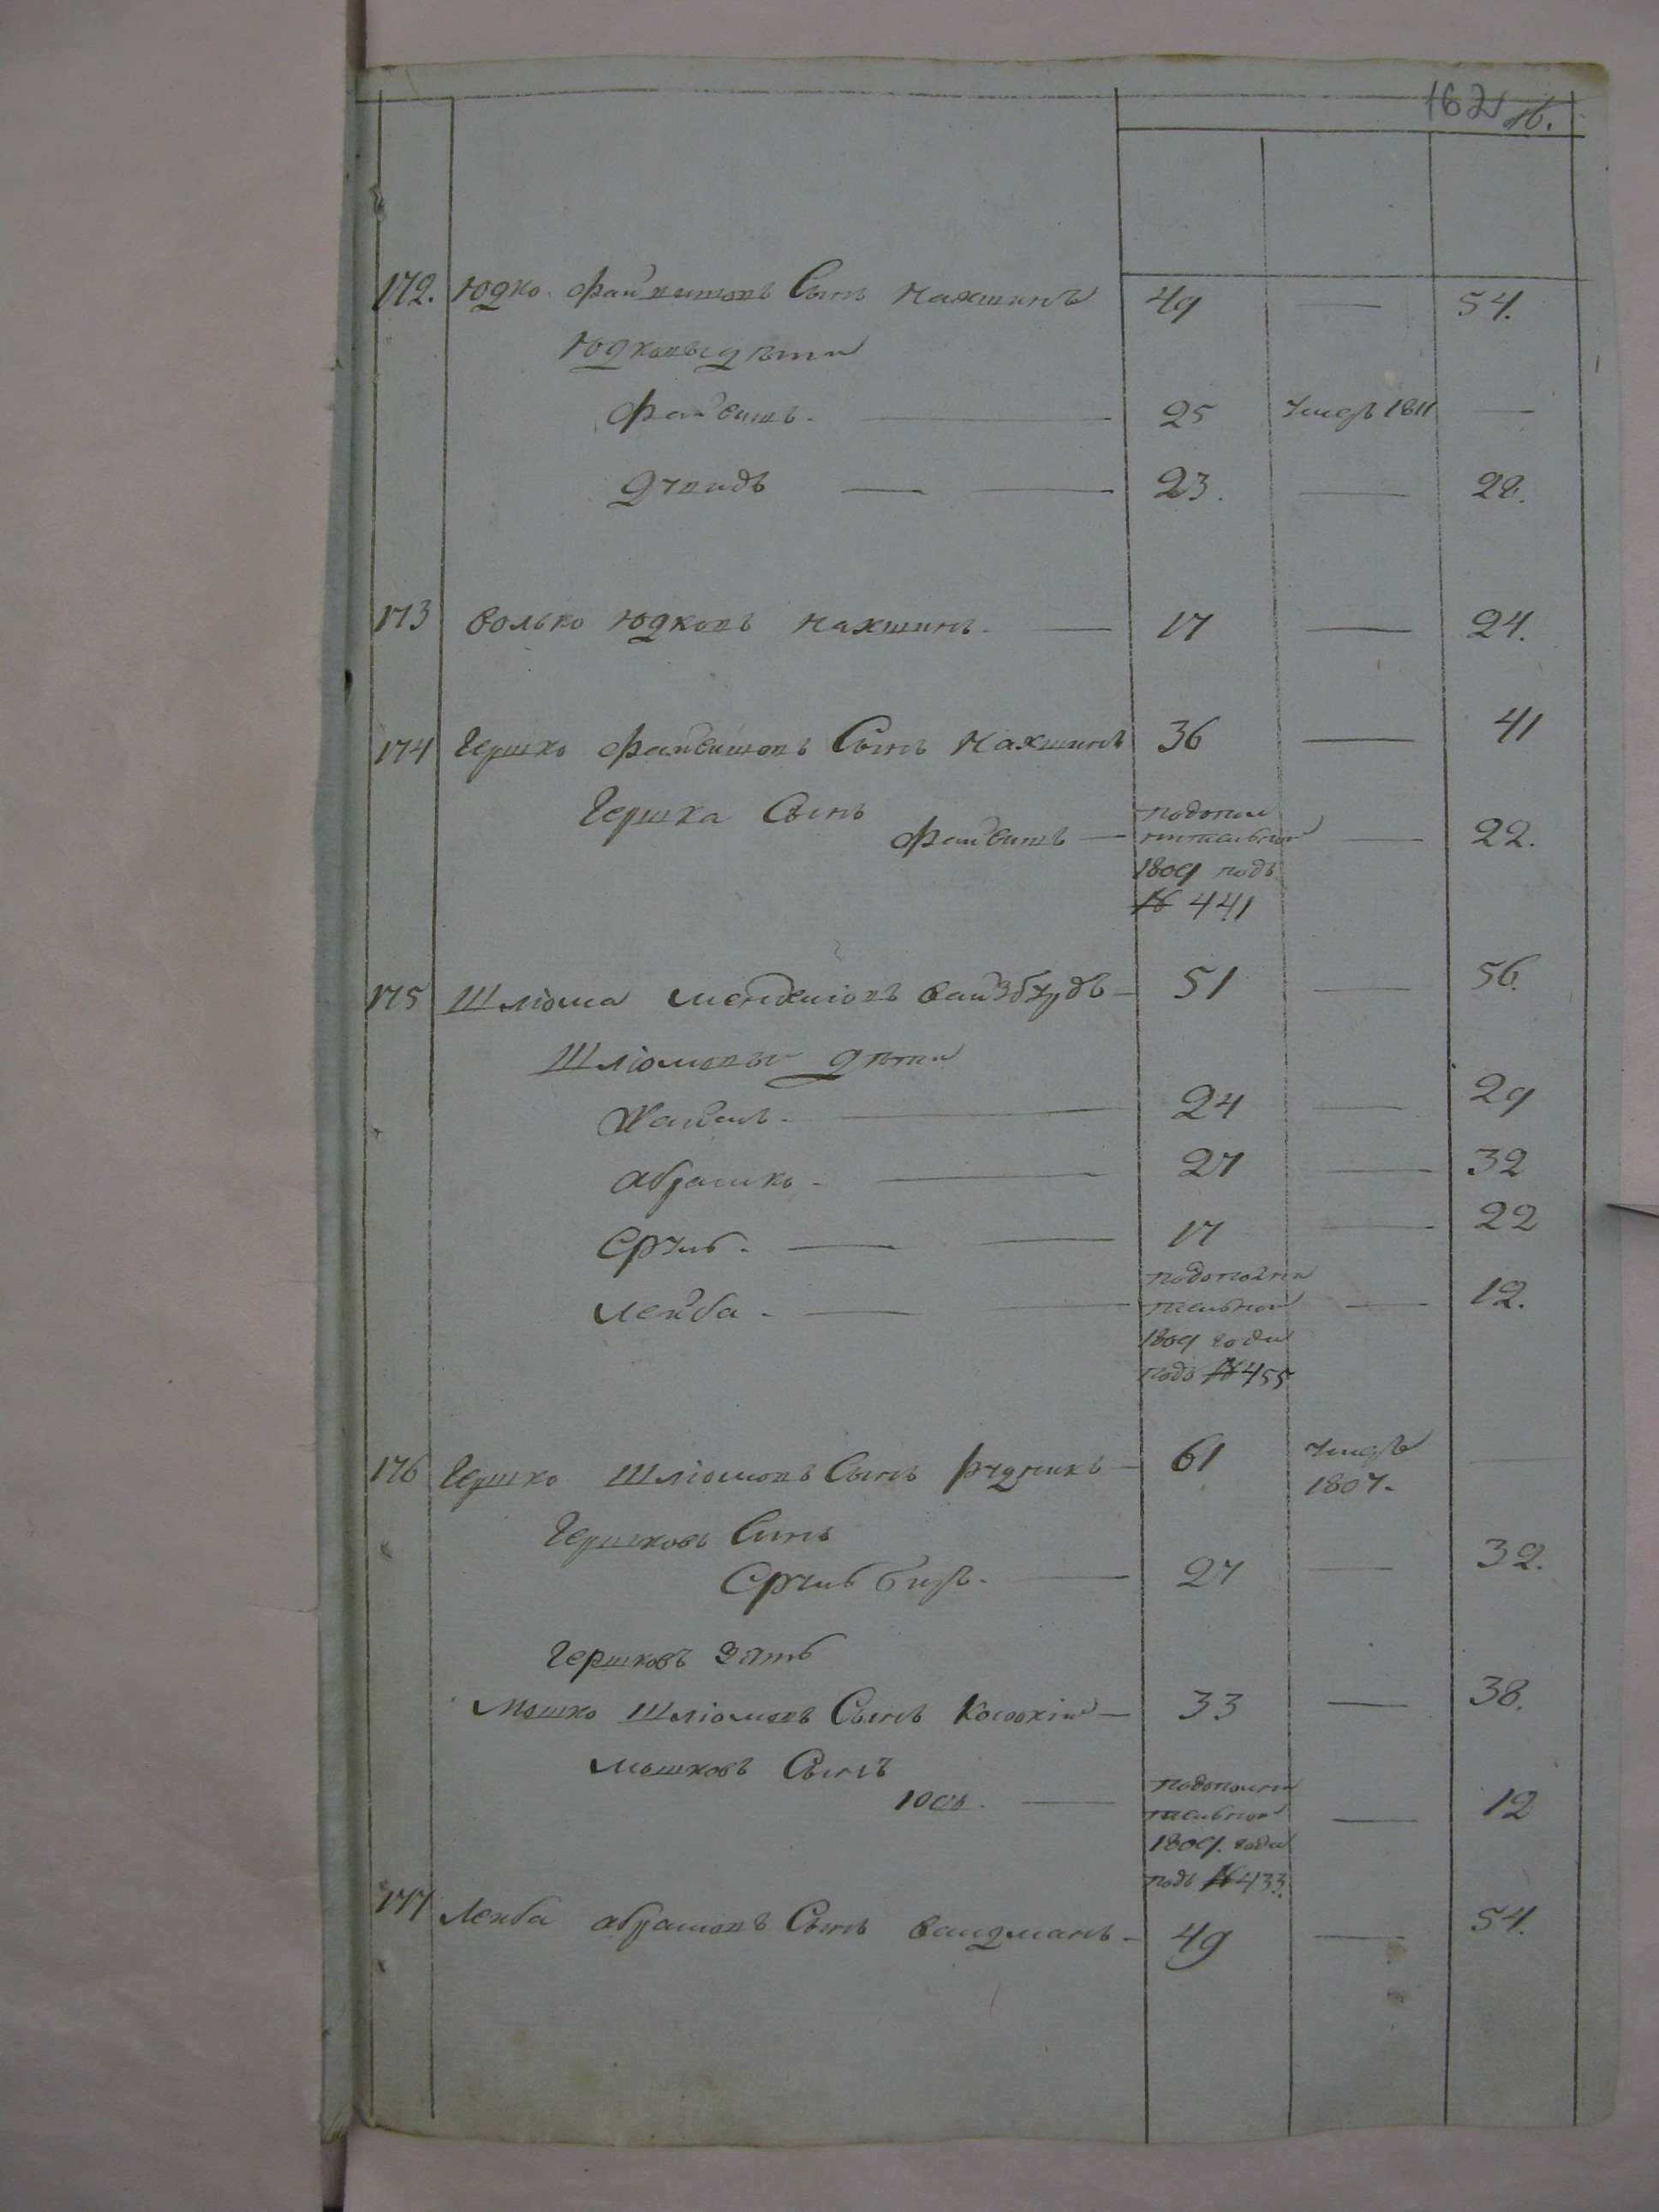 162 16.
172. Юдко Файвишовъ Сынъ Нахшинъ 49 — 54.
Юдковы дѣти
Файвишъ. — 25 Умеръ 1811 —
Дувидъ — — 23. — 28.
173 Волько Юдковъ Нахшинъ. — 17 — 24.
174 Гершко Файвишовъ Сынъ Нахшинъ 36 — 41
Гершка Сынъ
Файвишъ — подопол
нительной — 22.
1809 подъ
№ 441
175 Шліома Менделіовъ — 51 — 56.
Шліомовы дѣти
— 24 — 29
Абрамко. — 27 — 32
Сруль. — — 17 — 22
Лейба. — — подополни
тельной — 12.
1809 года
подъ № 455
176 Гершко Шліомовъ Сынъ Рудникъ — 61 Умеръ —
1807.
Гершковъ Сынъ
Сруль Беръ. — 27 — 32.
Гершковъ Зять
Мошко Шліомовъ Сынъ — 33 — 38.
Мошковъ Сынъ
Іось. — подополни
тельной — 12
1809. года
подъ № 433.
177 Лейба Абрамовъ Сынъ Вайдманъ. 49 — 54.